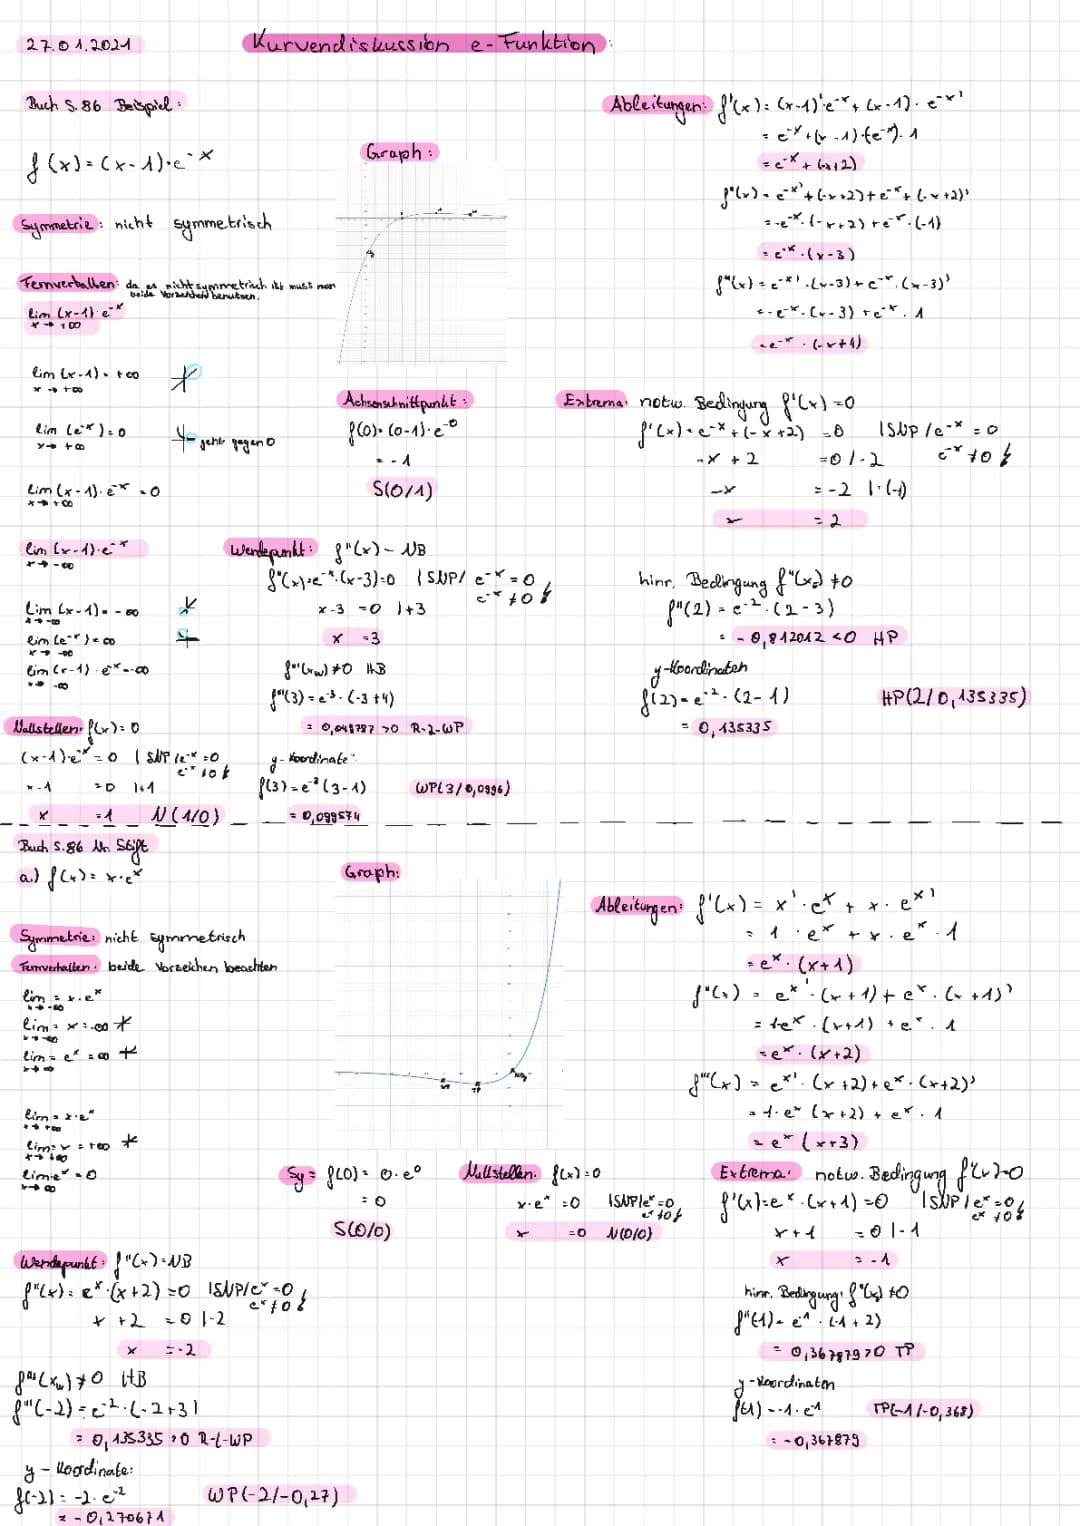 27.01.2021
Kurvendiskussion e-Funktion:
Buch S.86 Beispiel:
f(x)=(x-1)·e^-x
Symmetrie: nicht symmetrisch
Fernverhalten: da es nicht symmetrisch ist muss man
beide Vorzeichen benutzen.
lim (x-1)·e^-x
x→+∞
lim (x-1)=+∞
x→+∞
lim (e^-x)=0
x→+∞
geht gegen 0
lim (x-1)·e^-x=0
x→+∞
lim (x-1)·e^-x
x→-∞
lim (x-1)=-∞
x→-∞
lim (e^-x)=∞
x→-∞
lim (x-1)·e^-x=-∞
x→-∞
Nullstellen: f(x)=0
(x-1)·e^-x=0 | SNP/e^-x=0
e^-x≠0
x-1 =0 |+1
x =1 N(1/0)
Graph:
Achsenschnittpunkt:
f(0)=(0-1)·e^-0
=-1
S(0/1)
Wendepunkt: f''(x)-NB
f''(x)=e^-x·(x-3)=0 | SNP/ e^-x=0
e^-x≠0
x-3 =0 |+3
x =3
f'''(xw)≠0 HB
f'''(3)=e^-3·(-3+4)
=0,049787>0 R-L-WP
y-Koordinate:
f(3)=e^-3(3-1)
=0,099574
WP(3/0,0996)
Ableitungen: f'(x)=(x-1)'e^-x+(x-1)·e^-x'
=e^-x+(x-1)·(e^-x)·1
=e^-x+(-x+2)
f''(x)=e^-x'+(-x+2)+e^-x+(-x+2)'
=-e^-x·(-x+2)+e^-x·(-1)
=e^-x·(x-3)
f'''(x)=e^-x'·(x-3)+e^-x·(x-3)'
=-e^-x·(x-3)+e^-x·1
=e^-x·(-x+4)
Extrema: notw. Bedingung f'(x)=0
f'(x)=e^-x+(-x+2) =0 | SNP/e^-x=0
e^-x≠0
-x+2 =0 |-2
-x =-2 |·(-1)
x =2
hinr. Bedingung f''(x)≠0
f''(2)=e^-2·(2-3)
=-0,812012<0 HP
y-Koordinaten
f(2)=e^-2·(2-1)
=0,135335
HP(2/0,135335)
Buch S.86 Nr. Stift
a.) f(x)=x·e^x
Symmetrie: nicht symmetrisch
Fernverhalten: beide Vorzeichen beachten
lim = x·e^x
x→-∞
lim = x=-∞
x→-∞
lim = e^x=∞
x→∞
lim = x·e^x
x→+∞
lim = x=+∞
x→+∞
lim e^x=0
x→∞
Graph:
Sy= f(0)=0·e^0
=0
S(0/0)
Nullstellen: f(x)=0
x·e^x =0 | SNP/e^x=0
e^x≠0
x =0 N(0/0)
Ableitungen: f'(x)=x'·e^x+x·e^x'
=1·e^x+x·e^x·1
=e^x·(x+1)
f''(x)=e^x'·(x+1)+e^x·(x+1)'
=1e^x·(x+1)+e^x·1
=e^x·(x+2)
f'''(x)=e^x'·(x+2)+e^x·(x+2)'
=1·e^x(x+2)+e^x·1
=e^x(x+3)
Extrema: notw. Bedingung f'(x)=0
f'(x)=e^x·(x+1)=0 | SNP/e^x=0
e^x≠0
x+1 =0 |-1
x =-1
hinr. Bedingung: f''(x)≠0
f''(-1)=e^-1·(-1+2)
=0,367879>0 TP
y-Koordinaten
f(-1)=-1·e^-1
=-0,367879
TP(-1/-0,368)
Wendepunkt: f''(x)=NB
f''(x)=e^x·(x+2)=0 | SNP/e^x=0
e^x≠0
x+2 =0 |-2
x =-2
f'''(xw)≠0 HB
f'''(-2)=e^-2·(-2+3)
=0,135335>0 R-L-WP
y-Koordinate:
f(-2)=-2·e^-2
=-0,270671
WP(-2/-0,27)